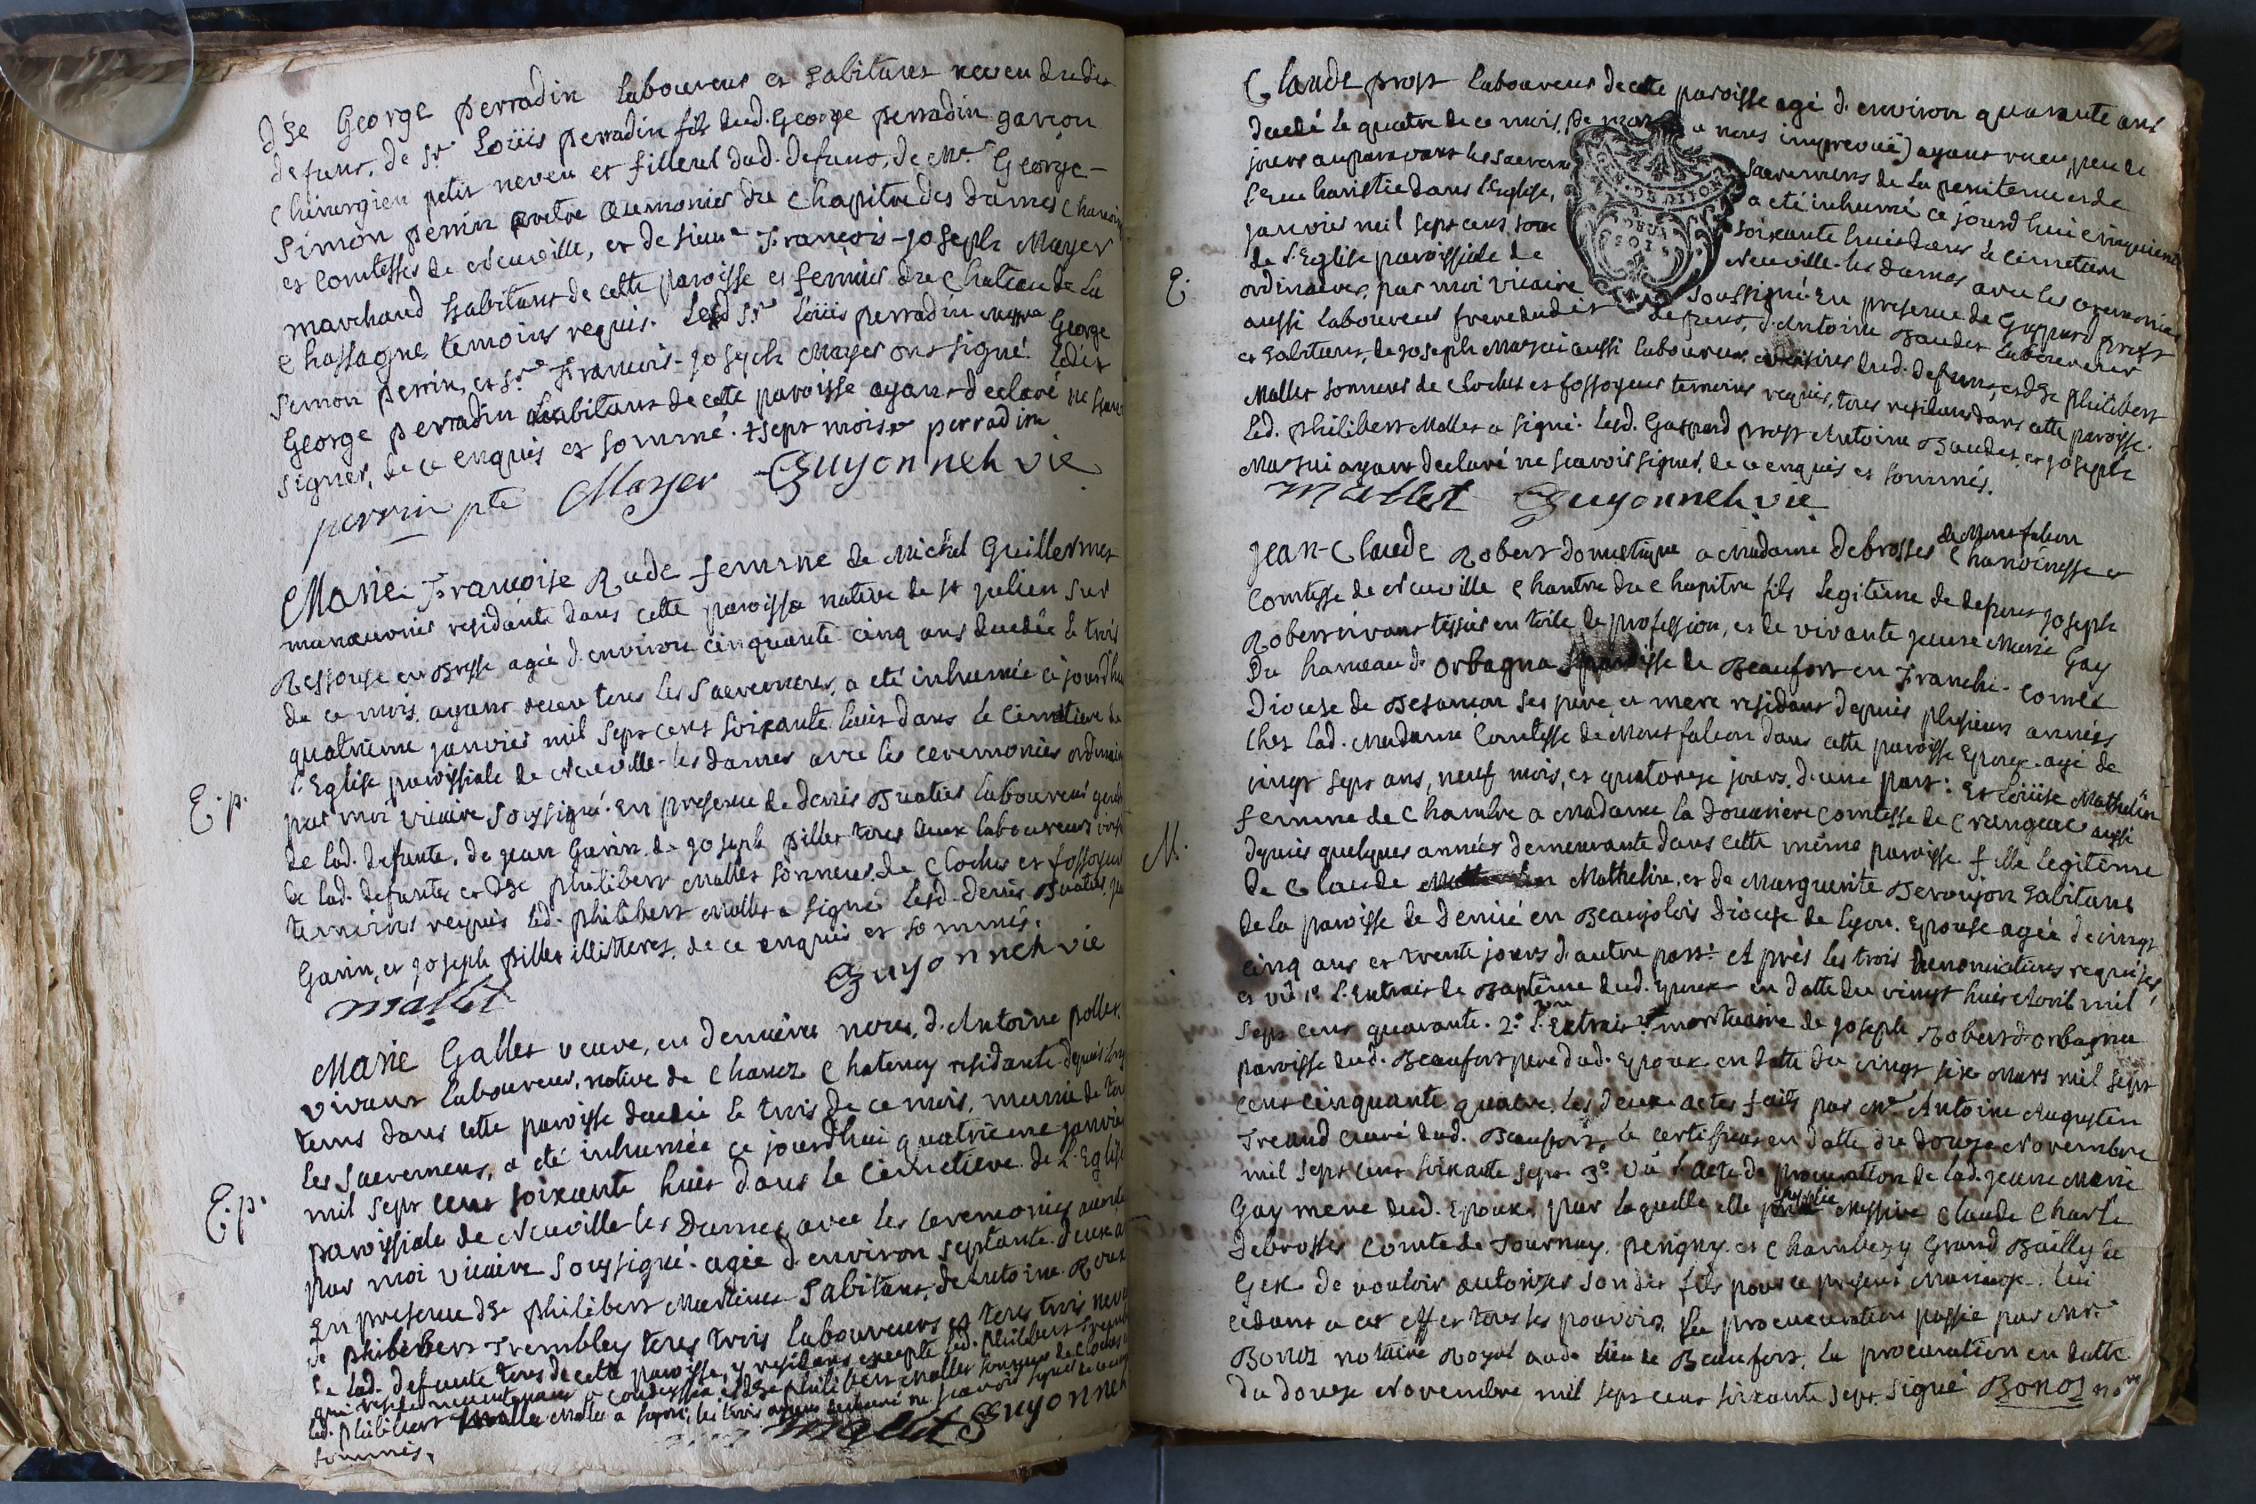 d'he George perradin laboureur et habitant neveu dudit
defunt, de sr. Loüis perradin fils dud. George perradin garçon
chirurgien petit neveu et filleul dud. defunt, de Mre. George-
Simon perrin prêtre aumonier du Chapitre des dames chanoin
et Comtesses de Neuville, et de sieur François-Joseph Mayer
marchand habitant de cette paroisse et fermier du Chateau de La
Chassagne, temoins requis. Led sr. Loüis perradin George
Simon perrin, et sr. François-Joseph Mayer ont signé. Ledit
George perradin habitant de cette paroisse ayant declaré ne scav
signer, de ce enquis et sommé. + sept mois perradin
perrin ptre Mayer Guyonneh vic
Marie Françoise Rude femme de Michel Guillermet
manœuvrier residante dans cette paroisse native de st julien sur
Ressouse en Bresse agée d'environ cinquante cinq ans decedée le trois
de ce mois, ayant receu tous les sacremens, a eté inhumée ce jourd'hui
quatrieme janvier mil sept cent soixante huit dans le cimetiere de
l'Eglise paroissiale de Neuville-les dames avec les ceremonies ordinair
E.p.
par moi vicaire soussigné. En presence de denis Buatier laboureur
de lad. defunte, de jean Garin, de joseph pillet tous deux laboureurs
de lad. defunte et d'he philibert Mallet sonneur de Cloches et fossoyeur
temoins requis led. philibert Mallet a signé lesd. denis Buatier, jea
Garin, et joseph pillet illitteres, de ce enquis et sommés.
mallet Guyonneh vic
Marie Gallet veuve, en dernieres noces, d'Antoine pollet
vivant laboureur, native de Chanoz Chatenay residante depuis long
tems dans cette paroisse decedée le trois de ce mois, munie de tou
les sacremens, a eté inhumée ce jourd'hui quatrieme janvier
mil sept cent soixante huit dans le cimetiere de l'Eglise
E.p.
paroissiale de Neuville les Dames, avec les ceremonies
par moi vicaire soussigné. agée d'environ septante deux a
En presence d'he philibert Martinet habitant, de Antoine Roux
de philibert Trembley tous trois laboureurs et tous trois neve
de lad. defunte tous de cette paroisse, y residans excepté led. philibert Tremb
qui reside maintenant a Condeyssia et d'he philibert Mallet sonneur de cloches
led. philibert Mallet a signé, les trois autres ayant declaré ne scavoir signer de ce enq
sommés. mallet Guyonneh
Claude prost laboureur de cette paroisse agé d'environ quarante ans
decedé le quatre de ce mois, (de mort a nous imprevuë) ayant receu peu de
jours auparavant les sacremens de la penitence et de
l'Eucharistie dans l'Eglise, a eté inhumé ce jourd'hui cinquieme
janvier mil sept cent soixante huit dans le cimetiere
de l'Eglise paroissiale de Neuville-les dames avec les ceremonies
E.
ordinaires, par moi vicaire soussigné. En presence de Gaspard prost
aussi laboureur frere dudit defunt, d'Antoine Baudet laboureur
et habitant, de joseph Mazui aussi laboureur, voisins dud. defunt, et d'he philibert
Mallet sonneur de Cloches et fossoyeur temoins requis, tous residans dans cette paroisse.
Led. philibert Mallet a signé. Lesd. Gaspard prost Antoine Baudet, et joseph
Mazui ayant declaré ne scavoir signer, de ce enquis et sommés.
mallet Guyonneh vic
de Montfalcon
Jean-Claude Robert domestique a Madame Debrosses Chanoinesse et
Comtesse de Neuville Chantre du Chapitre fils legitime de defunt joseph
Robert vivant tissier en toile de profession, et de vivante jeanne Marie Gay
Du hameau d'orbagna paroisse de Beaufort en Franche-Comté
Diocese de Besançon ses pere et mere residant depuis plusieurs années
chez lad. Madame Comtesse de Montfalcon dans cette paroisse Epoux agé de
vingt sept ans, neuf mois, et quatorze jours, d'une part: Et Loüise Mathelin
femme de Chambre a Madame la Douairiere Comtesse de Crangeac aussi
M.
depuis quelques années demeurante dans cette même paroisse fille legitime
de Claude Mathelin, et de Marguerite Beroujon habitans
de la paroisse de Denicé en Beaujolois Diocese de Lyon. Epouse agée de vingt
cinq ans et trente jours d'autre part: Après les trois denonciations requises
et vû 1° l'Extrait de Baptême dud. Epoux en datte du vingt huit Avril mil
sept cent quarante. 2° l'Extrait mortuaire de joseph Robert d'orbagna
paroisse dud. Beaufort pere dud. Epoux en datte du vingt six Mars mil sept
cent cinquante quatre, les deux actes faits par Mre. Antoine Augustin
Treand curé dud. Beaufort, le certificat en datte du douze Novembre
mil sept cent soixante sept. 3° Vû l'acte de procuration de lad. jeanne Marie
Gay mere dud. Epoux, par laquelle elle supplie Messire Claude Charle
Debrosses Comte de Tournay, perigny et Chambezy Grand Bailly de
Gex de vouloir autoriser son dit fils pour le present Mariage, lui
cedant a cet effet tous ses pouvoirs, La procuration passée par Mre.
Bonoz notaire Royal aud. lieu de Beaufort, la procuration en datte
du douze Novembre mil sept cent soixante sept. signé Bonoz nore